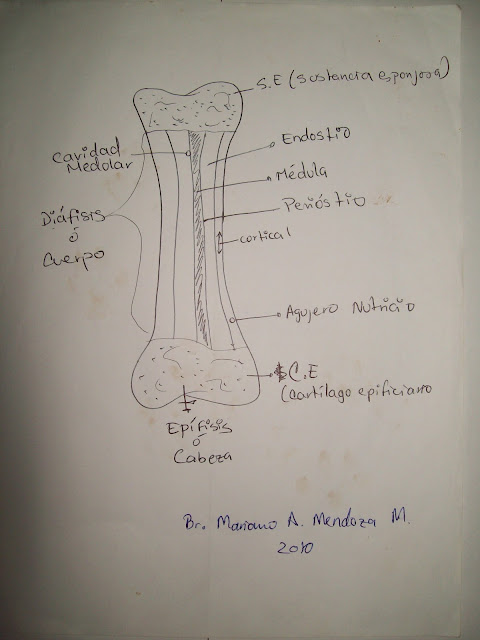 S.E (sustancia esponjosa)
Endostio
Cavidad
Medolar
Médula
Perióstio
Diáfisis
ó
Cuerpo
cortical
Agujero Nutricio
C.E
(cartílago epificiario
Epífisis
ó
Cabeza
Br. Mariano A. Mendoza M.
2010